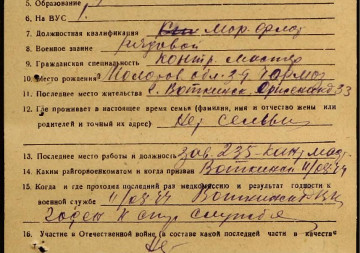 5. Образование
6. На ВУС
7. Должностная квалификация мор. флот
8. Военное звание рядовой
9. Гражданская специальность контр. мастер
10. Место рождения Молотов обл.
11. Последнее место жительства г. Воткинск 33
12. Где проживает в настоящее время семья (фамилия, имя и отчество жены или
родителей и точный их адрес) Нет семьи
13. Последнее место работы и должность зав. 235
14. Каким райгорвоенкоматом и когда призван Воткинский
15. Когда и где проходил последний раз медкомиссию и результат годности к
военной службе Воткинский РВК
годен к стр. службе
16. Участие в Отечественной войне (в составе какой последней части, в качестве
Нет